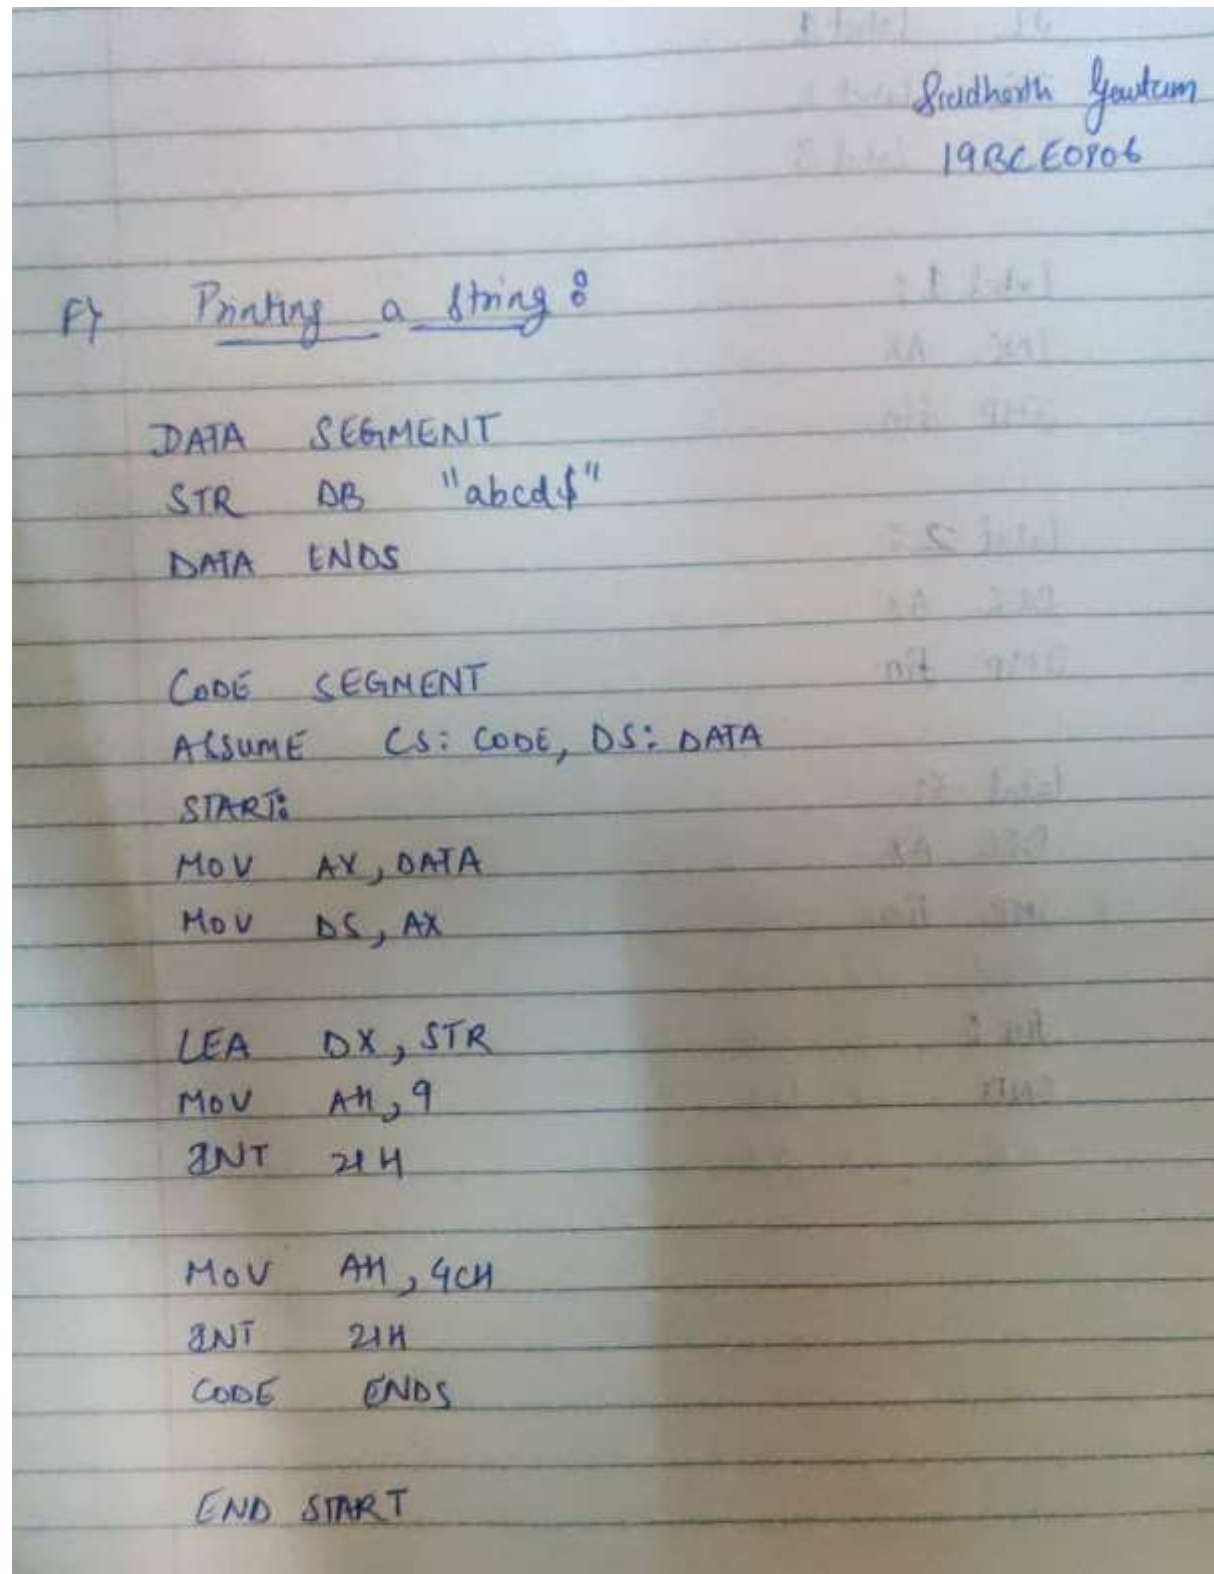 Siddharth Gautam
19BCE0806
F) Printing a String:
DATA SEGMENT
STR DB "abcd$"
DATA ENDS
CODE SEGMENT
ASSUME CS: CODE, DS: DATA
START:
MOV AX, DATA
MOV DS, AX
LEA DX, STR
MOV AH, 9
INT 21H
MOV AH, 4CH
INT 21H
CODE ENDS
END START